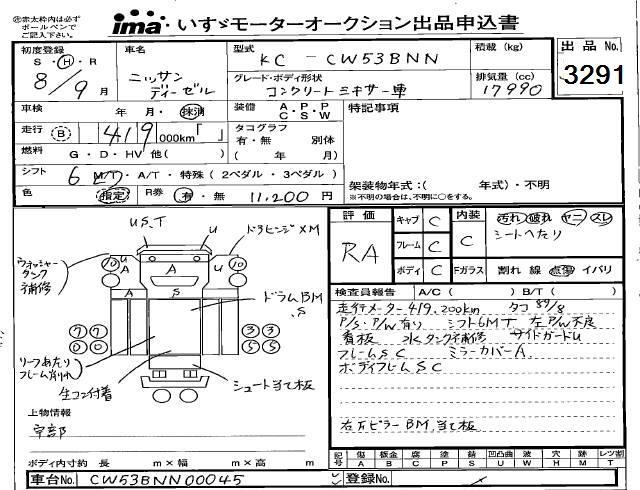 ㊟赤太枠内は必ず
ボールペンで
ご記入下さい。
ima いすゞモーターオークション出品申込書
初度登録 S・H・R 8/9月
車名 ニッサン ディーゼル
型式 KC-CW53BNN
積載(kg)
出品No. 3291
グレード・ボディ形状 コンクリートミキサー車
排気量(cc) 17990
車検 年 月・抹消
装備 A・P・P C・S・W
特記事項
走行 B 419 000km「 」
タコグラフ 有・無 別体 ( 年 月)
燃料 G・D・HV 他( )
シフト 6 MT・A/T・特殊(2ペダル・3ペダル)
架装物年式:( 年式)・不明
※不明の場合は、不明に○をする。
色 指定 R券 有・無 11,200円
評価 RA
キャブ C
フレーム C
ボディ C
内装 C
Fガラス
汚れ 破れ ヤニ スレ
シートへたり
割れ 線 点傷 イバリ
検査員報告 A/C( ) B/T( )
走行メーター419,200km タコ89/8
P/S・P/W有り シフト6MT 左P/W不良
看板 水タンク補修 サイドガードU
フレームSC ミラーカバーA
ボディフレームSC
右下ピラーBM、当て板
US,T
U
ドラヒンジXM
ウォッシャー
タンク
補修
10 U A A U 10
A S A
ドラムBM
、S
7 7 3 3
0 0 5 5
リーフあたり
フレーム削れ
生コン付着
シュート当て板
上物情報
宇部
ボディ内寸約 長 m×幅 m×高 m
記号 傷 鈑金 腐 塗 錆 凹凸曲 波 穴 跡 レツ割
A B C P S U W H M T
車台No. CW53BNN00045
登録No.